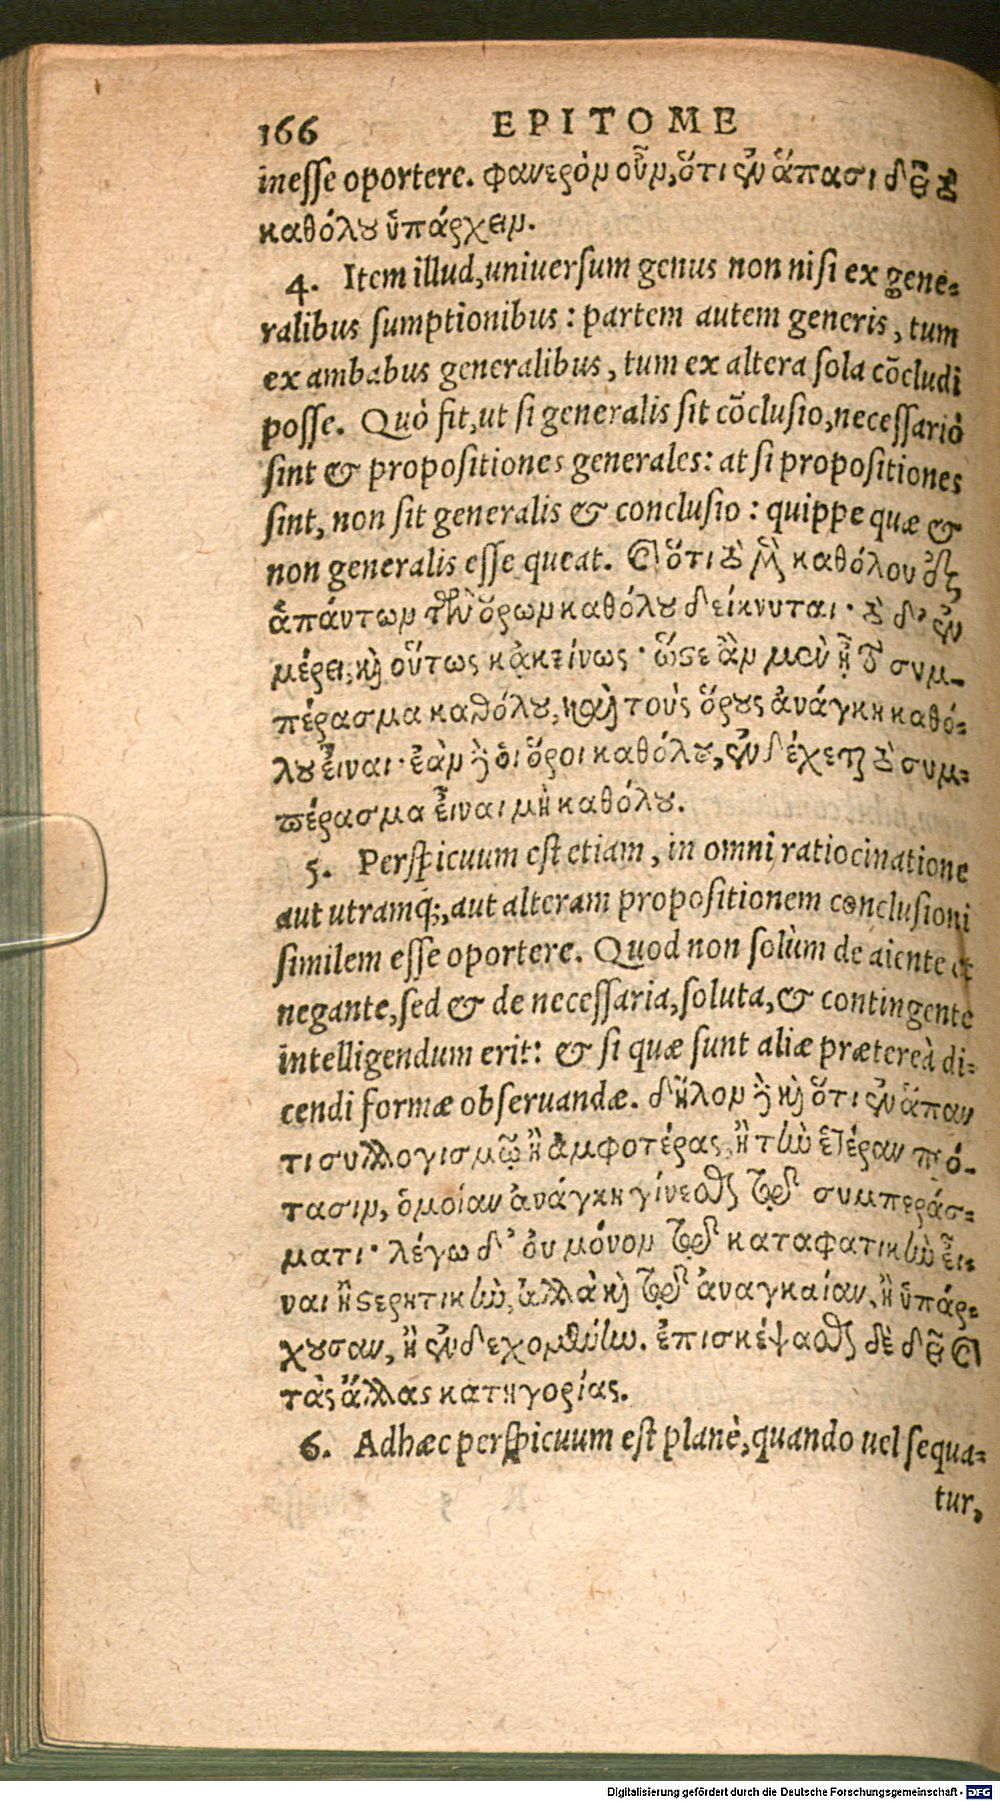 166 EPITOME
inesse oportere. φανερὸν οὖν, ὅτι ἐν ἅπασι δεῖ τὸ
καθόλου ὑπάρχειν.
4. Item illud, uniuersum genus non nisi ex gene-
ralibus sumptionibus: partem autem generis, tum
ex ambabus generalibus, tum ex altera sola cōcludi
posse. Quò fit, ut si generalis sit cōclusio, necessariò
sint & propositiones generales: at si propositiones
sint, non sit generalis & conclusio: quippe quæ &
non generalis esse queat. καὶ ὅτι τὸ μὲν καθόλου ἐξ
ἁπάντων τῶν ὅρων καθόλου δείκνυται· τὸ δ' ἐν
μέρει, καὶ οὕτως κἀκείνως· ὥστε ἂν μὲν ᾖ τὸ συμ-
πέρασμα καθόλου, καὶ τοὺς ὅρους ἀνάγκη καθό-
λου εἶναι· ἐὰν δὲ οἱ ὅροι καθόλου, ἐνδέχεται τὸ συμ-
πέρασμα εἶναι μὴ καθόλου.
5. Perspicuum est etiam, in omni ratiocinatione
aut utramq;, aut alteram propositionem conclusioni
similem esse oportere. Quod non solùm de aiente et
negante, sed & de necessaria, soluta, & contingente
intelligendum erit: & si quæ sunt aliæ prætereà di-
cendi formæ obseruandæ. δῆλον δὲ καὶ ὅτι ἐν ἅπαν
τι συλλογισμῷ ἢ ἀμφοτέρας, ἢ τὴν ἑτέραν πρό-
τασιν, ὁμοίαν ἀνάγκη γίνεσθαι τῷ συμπεράσ-
ματι· λέγω δ' οὐ μόνον τῷ καταφατικὴν εἶ-
ναι ἢ στερητικὴν, ἀλλὰ καὶ τῷ ἀναγκαίαν, ἢ ὑπάρ-
χουσαν, ἢ ἐνδεχομένην. ἐπισκέψασθαι δὲ δεῖ καὶ
τὰς ἄλλας κατηγορίας.
6. Adhæc perspicuum est planè, quando uel sequa-
tur,
Digitalisierung gefördert durch die Deutsche Forschungsgemeinschaft - DFG